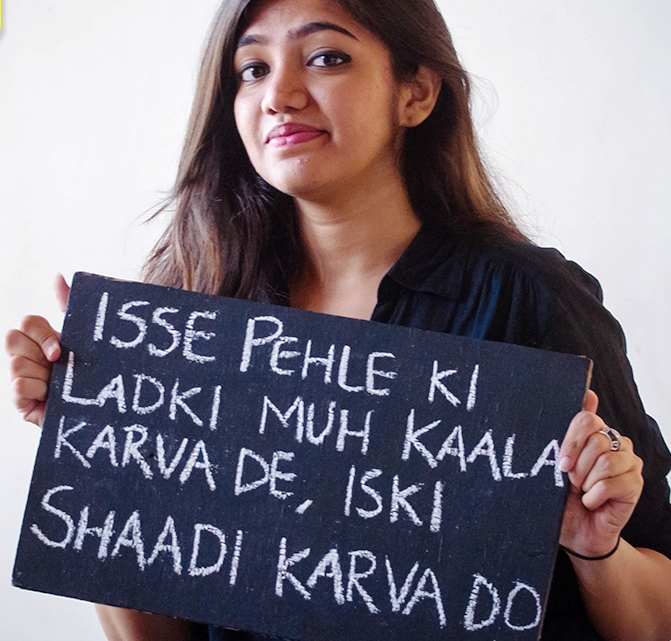 ISSE PEHLE KI
LADKI MUH KAALA
KARVA DE, ISKI
SHAADI KARVA DO